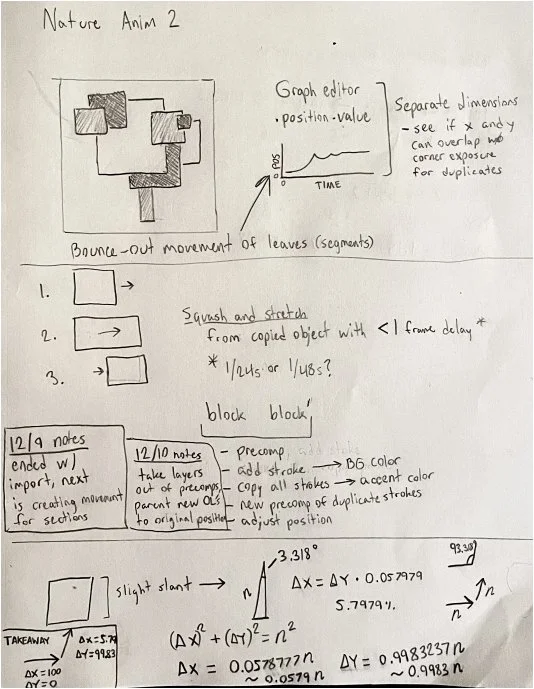 Nature Anim 2
Graph editor
· position · value
Separate dimensions
- see if x and y
can overlap w/o
corner exposure
for duplicates
POS
0
0
TIME
Bounce-out movement of leaves (segments)
1.
2.
3.
Squash and stretch
from copied object with <1 frame delay*
* 1/24s or 1/48s?
block block'
12/9 notes
ended w/
import, next
is creating movement
for sections
12/10 notes
take layers
out of precomps,
parent new OLs
to original position
- precomp, add stroke
- add stroke → BG color
- copy all strokes → accent color
- new precomp of duplicate strokes
- adjust position
slight slant →
3.318°
n
ΔX = ΔY · 0.057979
5.7979%
93.318°
n
n
(ΔX)² + (ΔY)² = n²
ΔX = 0.0578777n
~ 0.0579n
ΔY = 0.9983237n
~ 0.9983n
TAKEAWAY
ΔX=5.79
ΔY=99.83
ΔX=100
ΔY=0